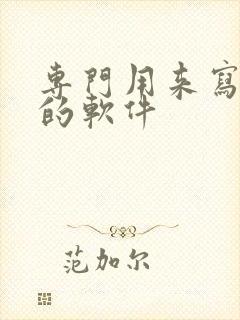 專門用來寫
的軟件
范加尔